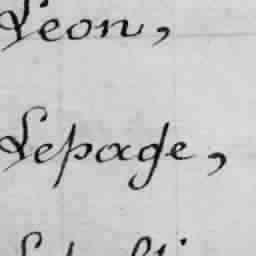 Léon,
Lepage,